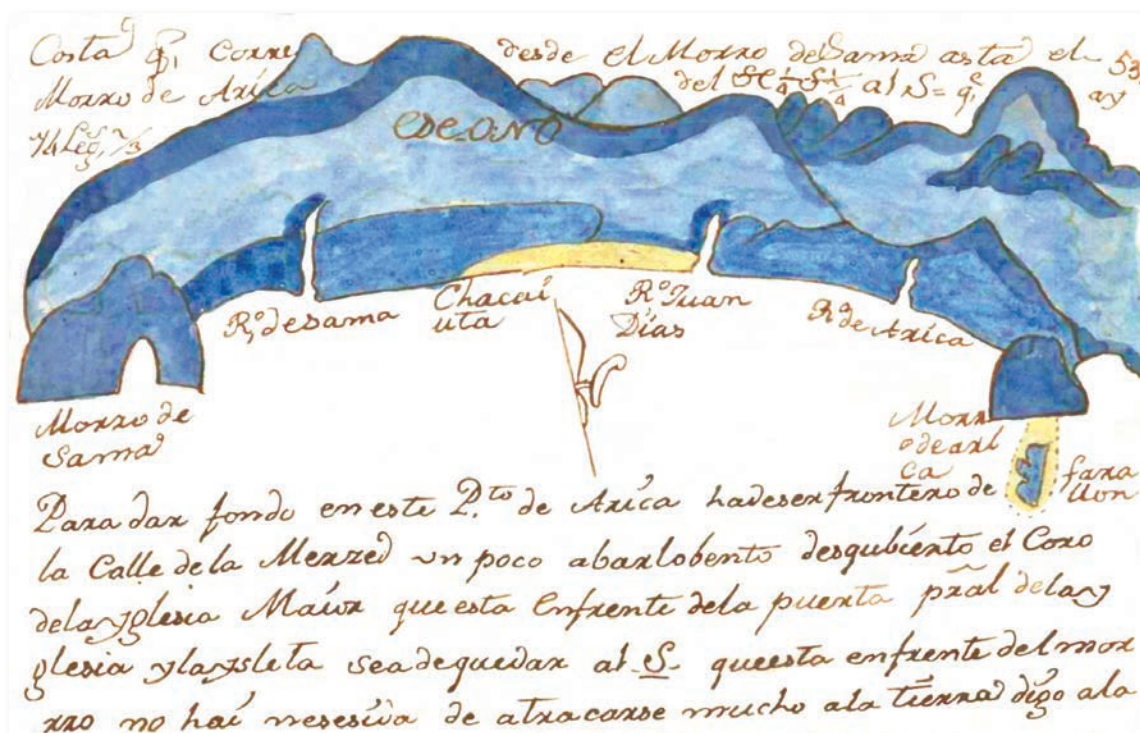 Costa q̃ Corre desde el Morro de Sama asta el 53
Morro de Arica del SE al S= q̃ ay
14 Leg.s 1/3
ESE-ONO
R.o de sama
Chacai
uta
R.o Juan
Dias
R.o de Arica
Morro de
Sama
Morr
o de ari
ca
fara
llon
Para dar fondo en este P.to de Arica hadeser frontero de
la Calle dela Merzed un poco abarlobento desqubierto el Coro
delayglesia Maior que esta Enfrente dela puerta pral delay
glesia ylaysleta seadequedar al S- questa enfrente del mor
rro no hai nesesida de atracarse mucho ala tierra digo ala